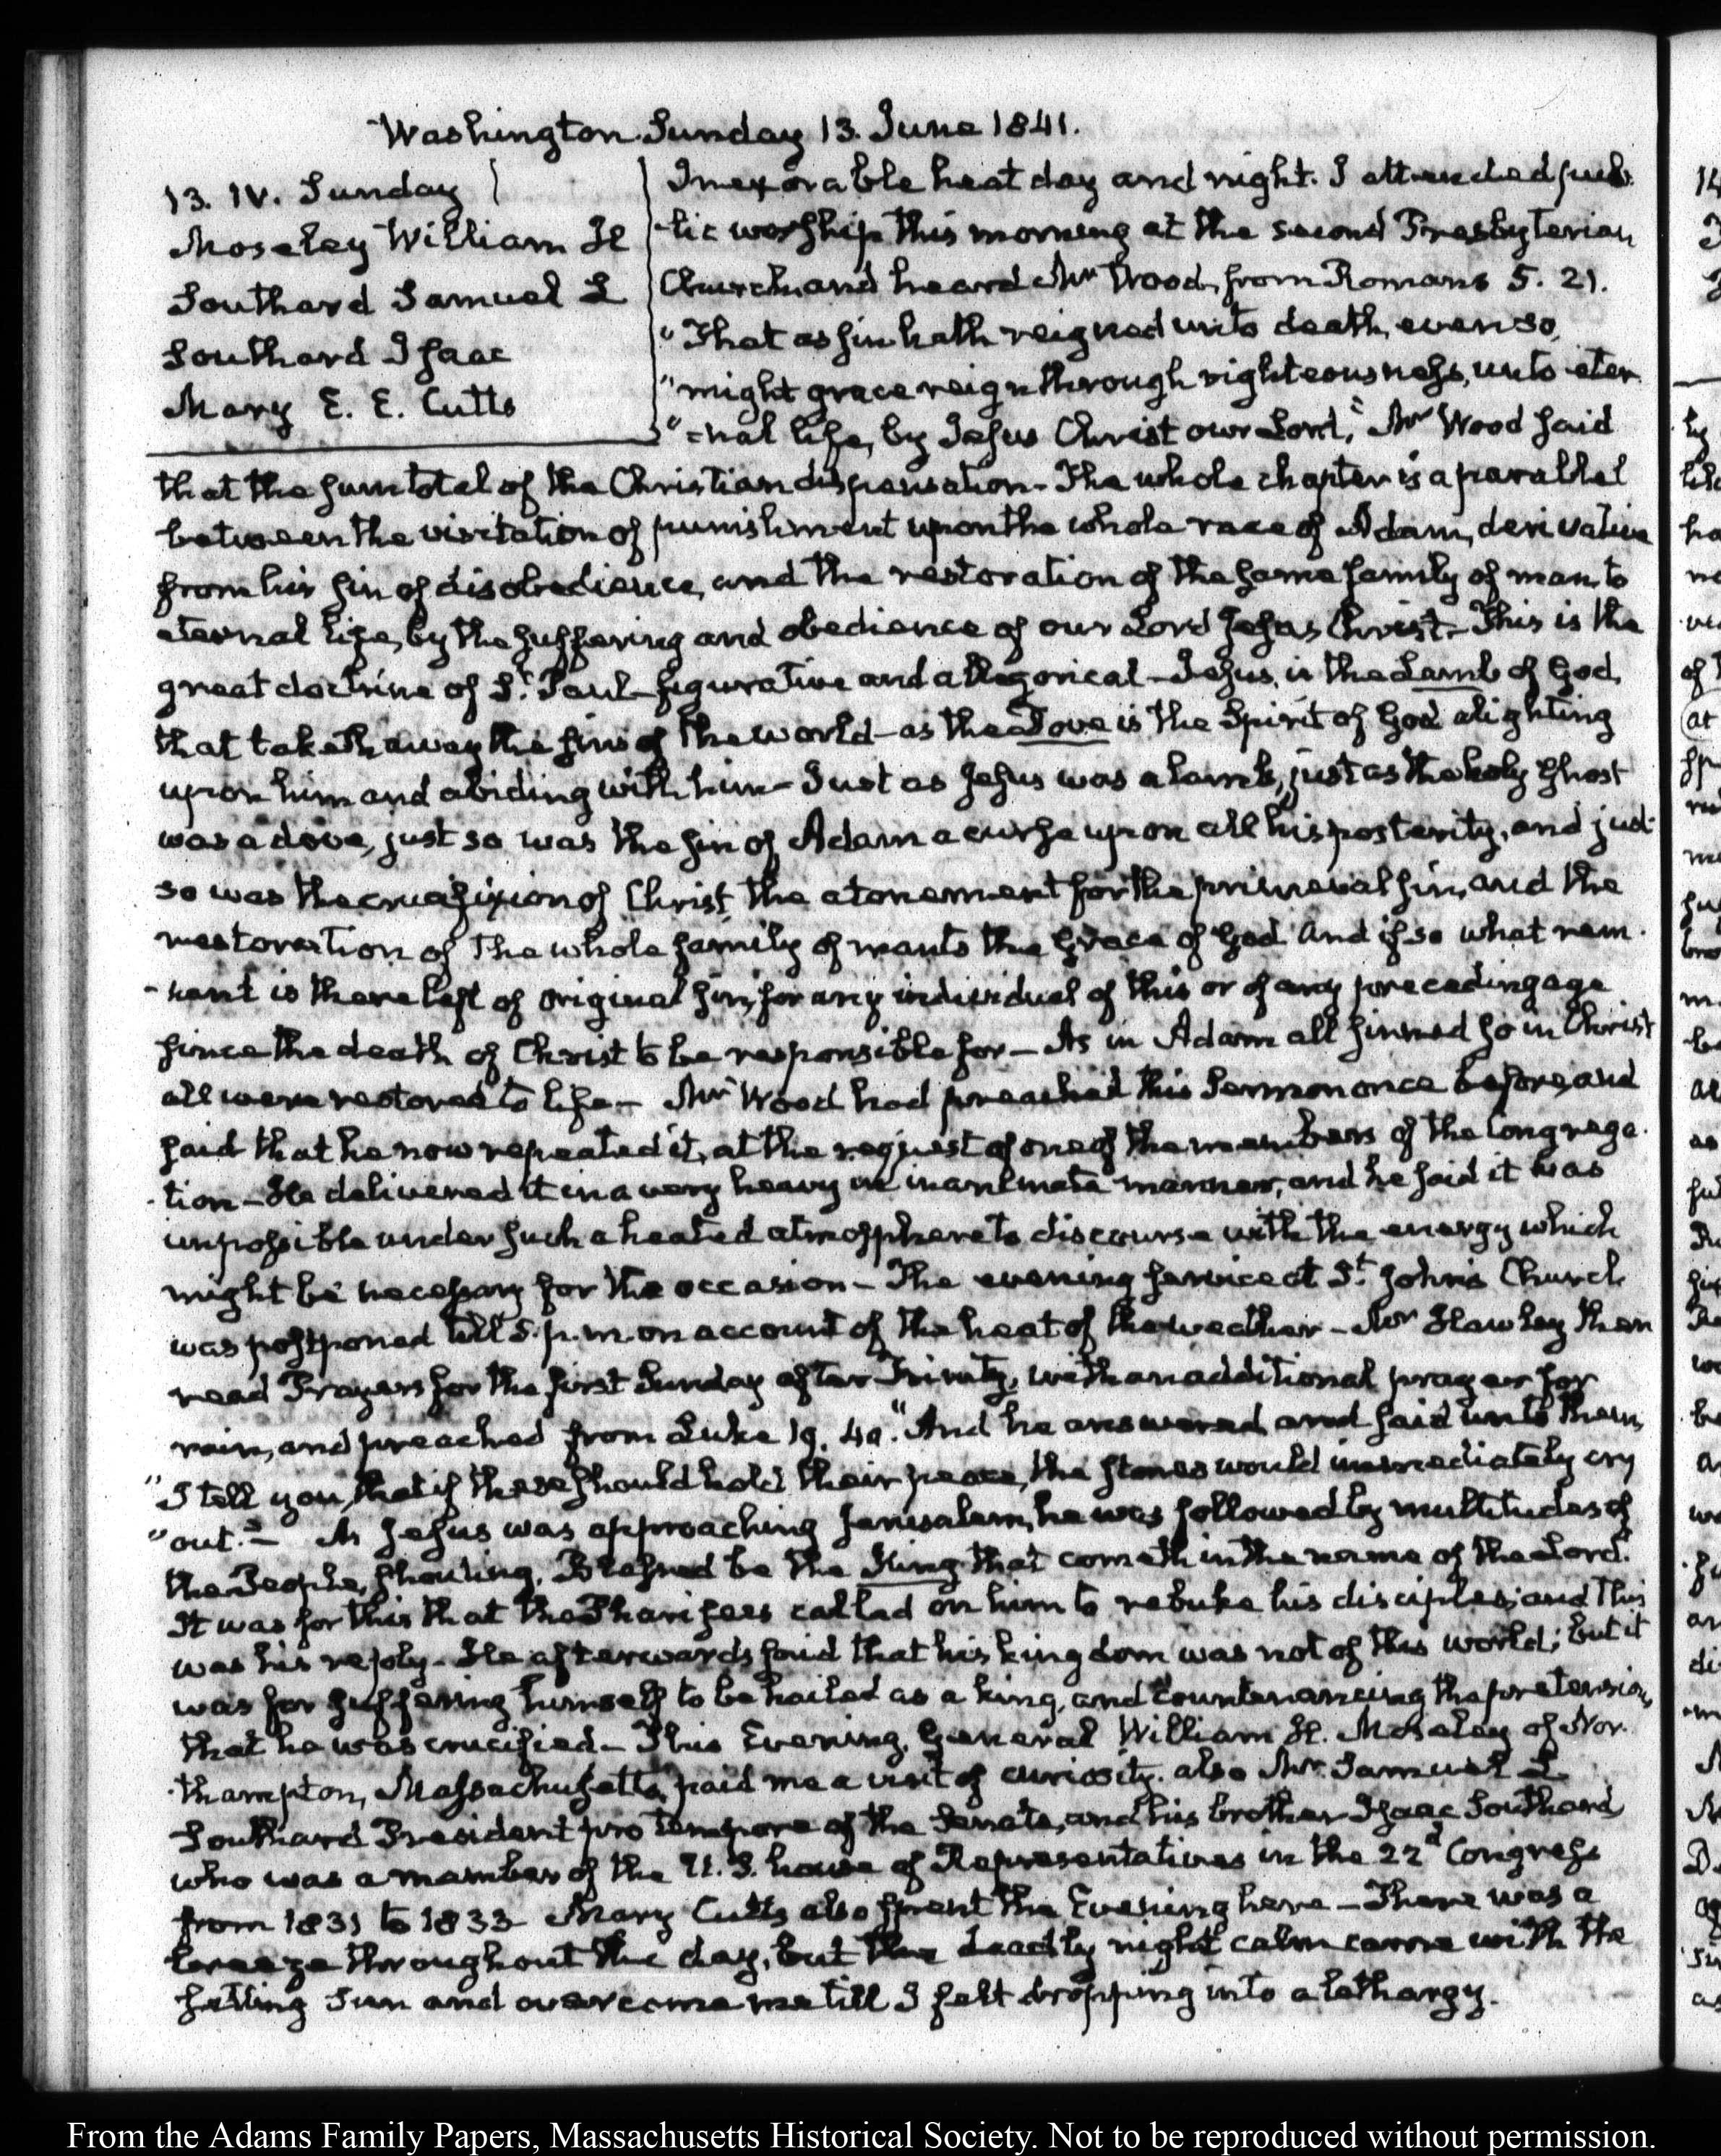 Washington Sunday 13. June 1841.
13. IV. Sunday
Moseley William H
Southard Samuel L
Southard Isaac
Mary E. E. Cutts
Inexorable heat day and night. I attended pub-
-lic worship this morning at the second Presbyterian
Church and heard Mr Wood, from Romans 5. 21.
"That as sin hath reigned unto death, even so,
"might grace reign through righteousness, unto eter
"=nal life, by Jesus Christ our Lord," Mr Wood said
that the sum total of the Christian dispensation - The whole chapter is a parallel
between the visitation of punishment upon the whole race of Adam, derivative
from his sin of disobedience, and the restoration of the same family of man, to
eternal life, by the suffering and obedience of our Lord Jesus Christ - This is the
great doctrine of St. Paul - figurative and allegorical - Jesus, is the Lamb of God,
that taketh away the sins of the world - as the Dove is the Spirit of God alighting
upon him and abiding with him - Just as Jesus was a lamb, just as the holy Ghost
was a dove, just so was the sin of Adam a curse upon all his posterity, and just
so was the crucifixion of Christ the atonement for the primeval sin, and the
restoration of the whole family of man to the Grace of God And if so what rem-
-nant is there left of original sin, for any individual of this or of any preceding age
since the death of Christ to be responsible for - As in Adam all sinned so in Christ
all were restored to life - Mr Wood had preached this Sermon once before, and
said that he now repeated it, at the request of one of the members of the Congrega-
-tion - He delivered it in a very heavy inanimate manner, and he said it was
impossible under such a heated atmosphere to discourse with the energy which
might be necessary for the occasion - The evening service at St. John's Church
was postponed till 5. p.m. on account of the heat of the weather - Mr Hawley then
read Prayers for the first Sunday after Trinity, with an additional prayer for
rain, and preached from Luke 19. 40. "And he answered and said unto them,
"I tell you, that if these should hold their peace, the stones would immediately cry
"out." - As Jesus was approaching Jerusalem, he was followed by multitudes of
the People, shouting, Blessed be the King that cometh in the name of the Lord.
It was for this that the Pharisees called on him to rebuke his disciples; and this
was his reply - He afterwards said that his kingdom was not of this world; but it
was for suffering himself to be hailed as a king, and countenancing the pretension,
that he was crucified - This Evening, General William H. Moseley of Nor-
-thampton, Massachusetts, paid me a visit of curiosity. also Mr. Samuel L
Southard President pro tempore of the Senate, and his brother Isaac Southard
who was a member of the U.S. house of Representatives in the 22d Congress
from 1831 to 1833 - Mary Cutts also spent the Evening here - There was a
breeze throughout the day, but the deadly night calm came with the
setting Sun and overcame me till I felt dropping into a lethargy.
From the Adams Family Papers, Massachusetts Historical Society. Not to be reproduced without permission.